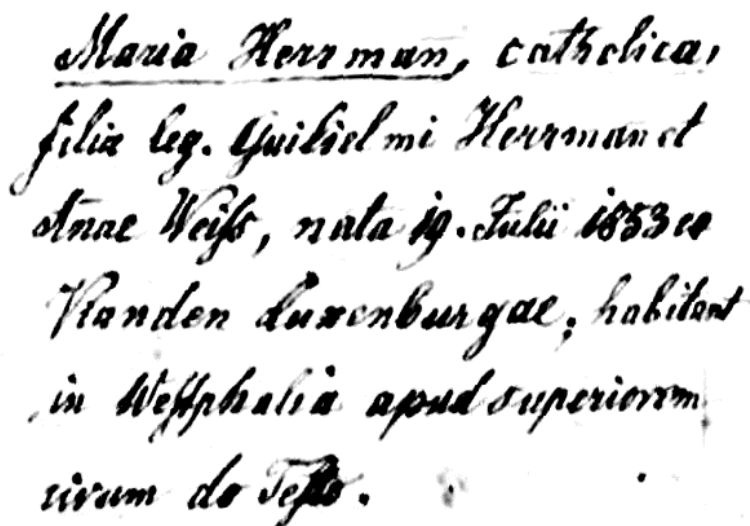 Maria Herrman, catholica,
filia leg. Guilielmi Herrman et
Annae Weiſs, nata 19. Julii 1853 ex
Vianden Luxenburgae; habitant
in Weſtphalia apud superiorem
rivum do